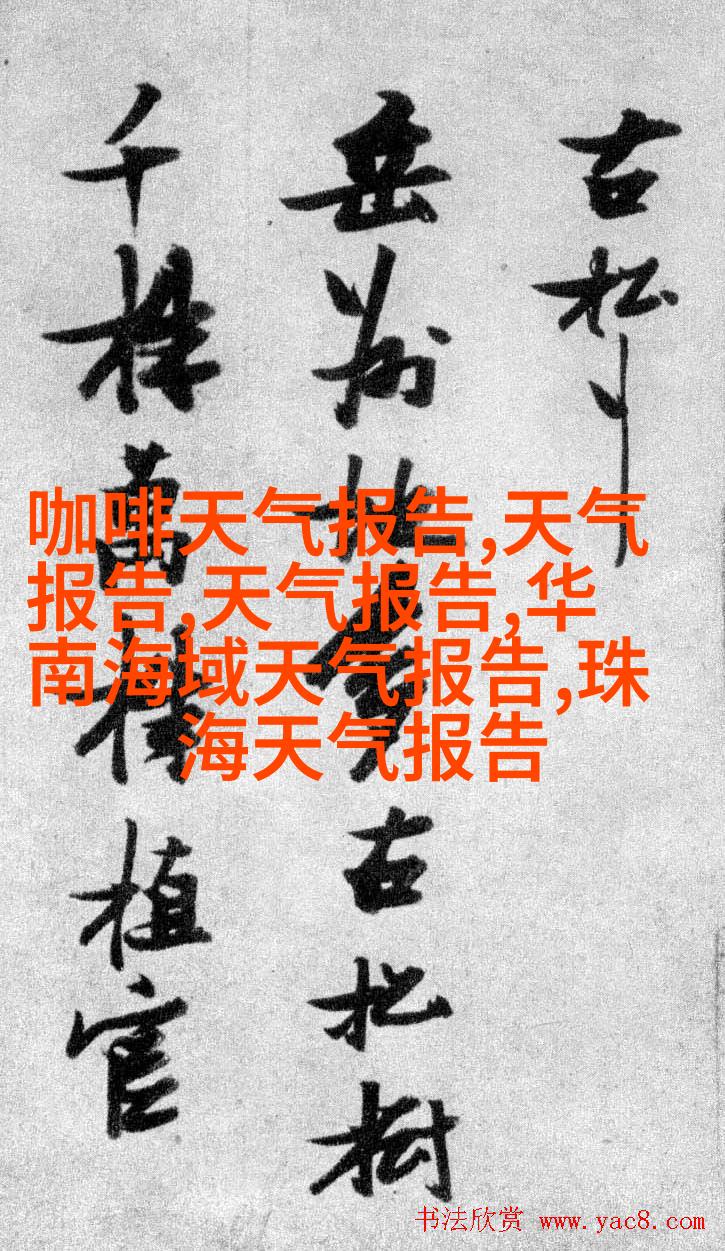 古松
岳州地多古松樹
千株萬株植官
咖啡天气报告,天气
报告,天气报告,华
南海域天气报告,珠
海天气报告
书法欣赏 www.yac8.com